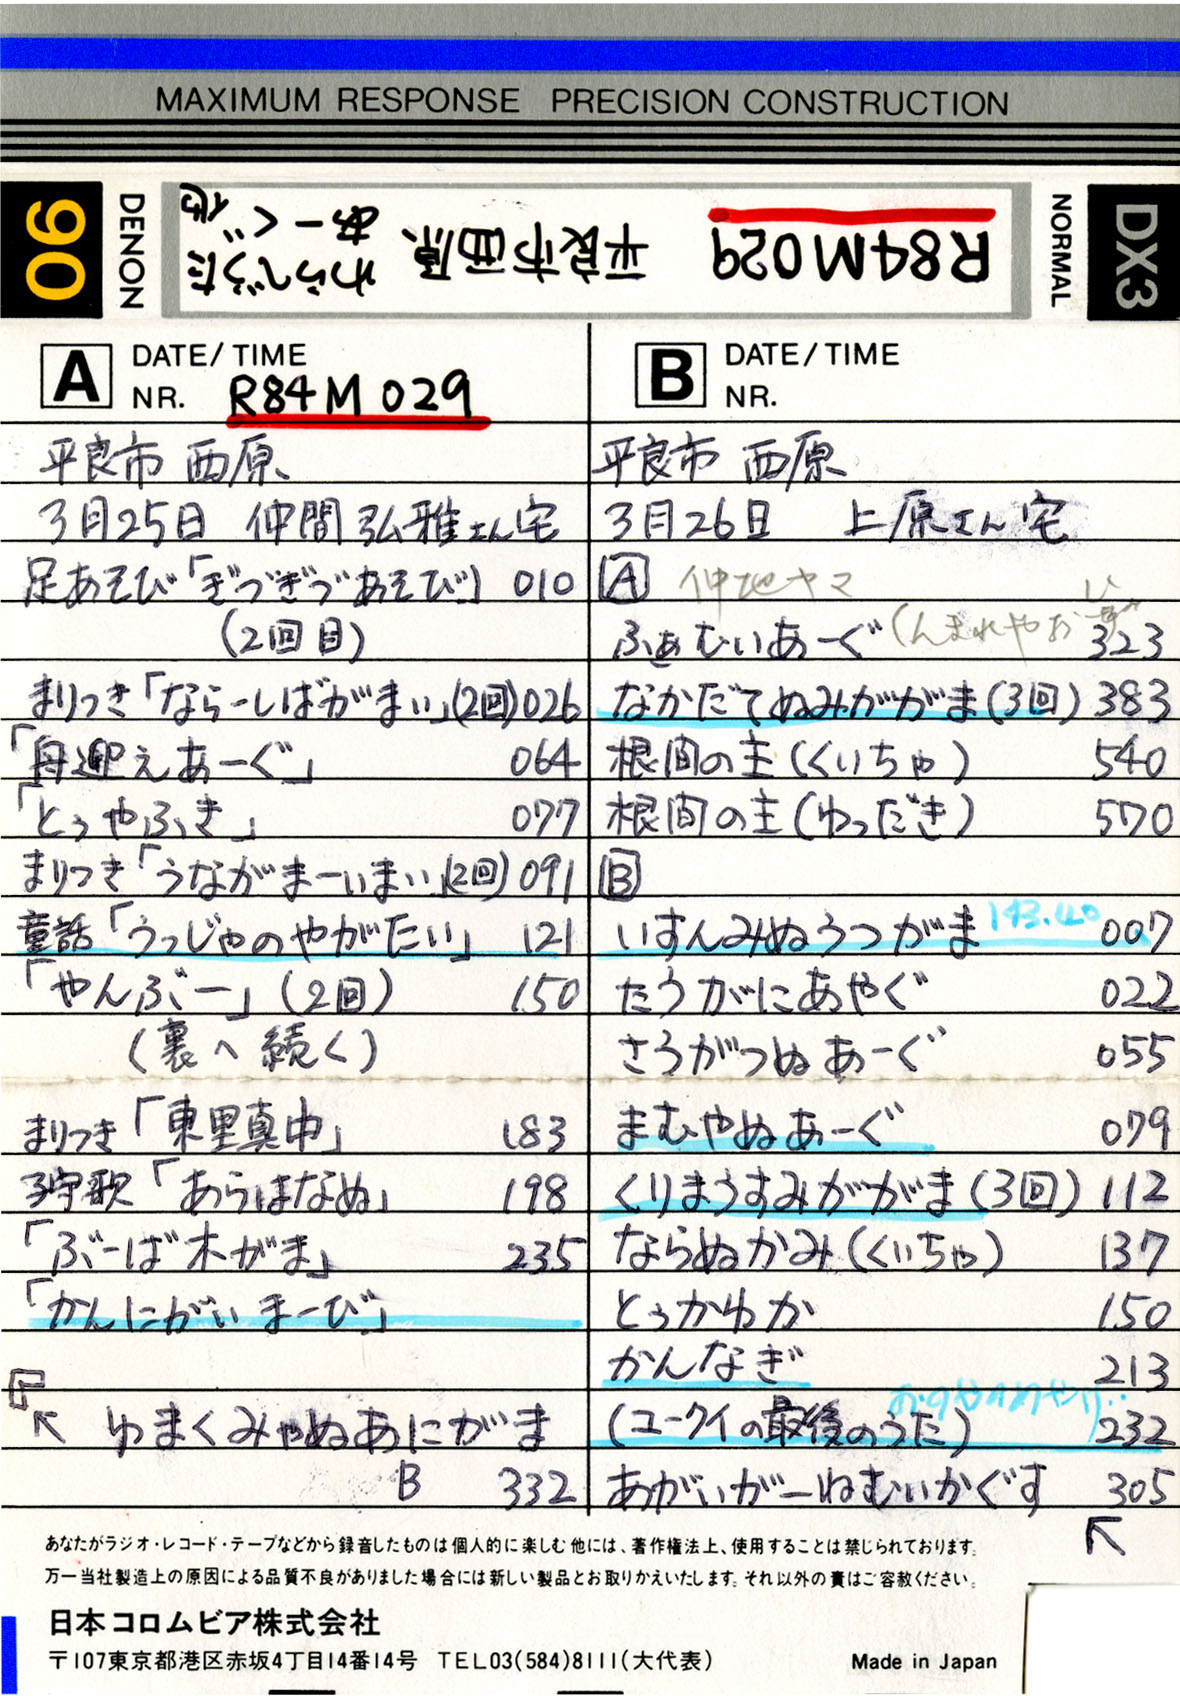 MAXIMUM RESPONSE PRECISION CONSTRUCTION
90
DENON
R84M029 平良市西原 わらべうた
あーぐ 他
NORMAL
DX3
A DATE/TIME
NR. R84M029
平良市 西原
3月25日 仲間弘雅さん宅
足あそび「ぎづぎづあそび」 010
(2回目)
まりつき「ならーしばがまい」(2回) 026
「母迎えあーぐ」 064
「とぅやふき」 077
まりつき「うながまーいまい」(2回) 091
童話「うっじゃのやがたい」 121
「やんぶー」(2回) 150
(裏へ続く)
まりつき「東里真中」 183
子守歌「あらはなぬ」 198
「ぶーば木がま」 235
「かんにがいまーび」
ゆまくみゃぬあにがま
B 332
B DATE/TIME
NR.
平良市 西原
3月26日 上原さん宅
A 仲地ヤマ
ふぁむいあーぐ (んまれやお 323
なかだてぬみががま(3回) 383
根間の主(くいちゃ) 540
根間の主(ゆっだき) 570
B
いすんみぬうつがま 143.40 007
たうがにあやぐ 022
さうがつぬあーぐ 055
まむやぬあーぐ 079
くりまうすみががま(3回) 112
ならぬかみ(くいちゃ) 137
とぅかゆか 150
かんなぎ 213
(ユークイの最後のうた) 232
あがいがーねむいかぐす 305
あなたがラジオ・レコード・テープなどから録音したものは個人的に楽しむ他には、著作権法上、使用することは禁じられております。
万一当社製造上の原因による品質不良がありました場合には新しい製品とお取りかえいたします。それ以外の責はご容赦ください。
日本コロムビア株式会社
〒107東京都港区赤坂4丁目14番14号 TEL03(584)8111(大代表)
Made in Japan